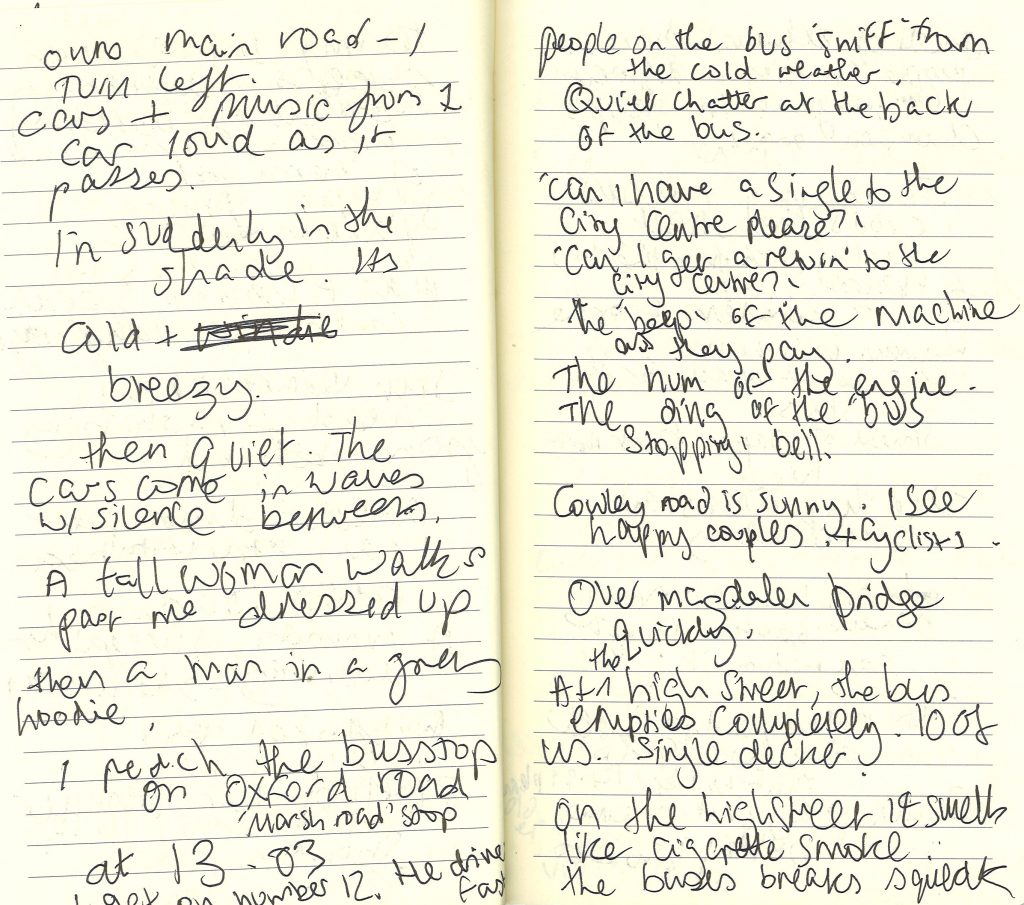 onto main road - I
TURN left.
Cars + music from 1
car loud as it
passes.
I'm suddenly in the
shade. Its
Cold +
breezy.
then quiet. The
Cars come in waves
w/ silence between.
A tall woman walks
past me dressed up
then a man in a grey
hoodie.
I reach the bus stop
on Oxford road
'Marsh road' stop
at 13.03
I get on number 12. He drives
fast
people on the bus 'sniff' from
the cold weather.
Quiet chatter at the back
of the bus.
'can I have a single to the
City Centre please?'
'Can I get a return to the
city centre?'
the 'beep' of the machine
as they pay.
The hum of the engine.
The ding of the 'bus
stopping' bell.
Cowley road is sunny. I see
happy couples + cyclists.
Over magdalen bridge
quickly.
At the high street, the bus
empties completely. 10 of
us. Single decker.
on the highstreet it smells
like cigarette smoke.
the buses breaks squeak